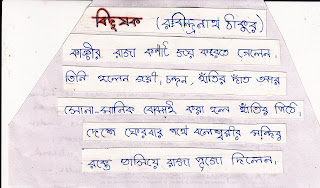 বিদূষক (রবীন্দ্রনাথ ঠাকুর)
কাঞ্চীর রাজা কর্ণাট জয় করতে গেলেন।
তিনি হলেন জয়ী। চন্দনে, হাতির দাঁতে, আর
সোনা-মানিকে বোঝাই করা হল হাতির পিঠে।
দেশে ফেরবার পথে বলেশ্বরীর মন্দির
রক্তে ভাসিয়ে রাজা পুজো দিলেন।